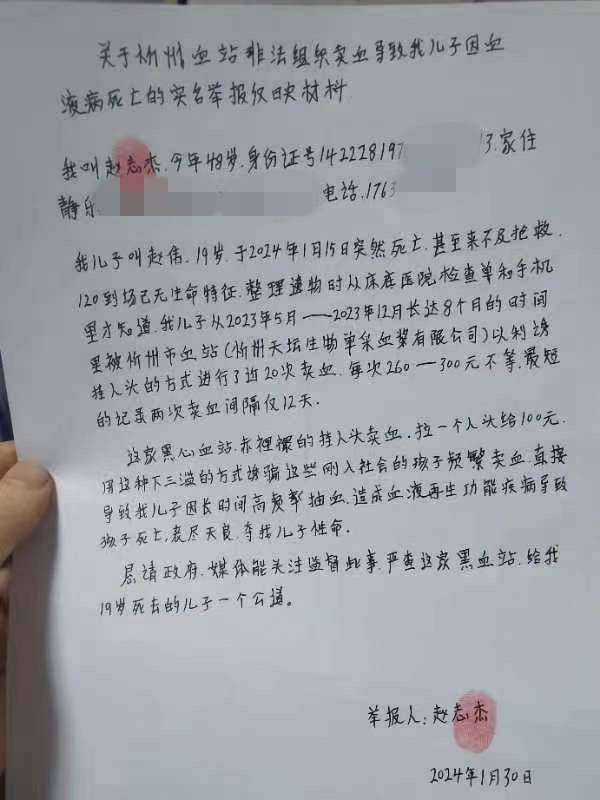 关于忻州血站非法组织卖血导致我儿子因血
液病死亡的实名举报反映材料
我叫赵志杰.今年48岁.身份证号14222819713.家住
静乐 电话.1763
我儿子叫赵伟.19岁.于2024年1月15日突然死亡.甚至来不及抢救.
120到场已无生命特征.整理遗物时从床底医院检查单和手机
里才知道.我儿子从2023年5月——2023年12月长达8个月的时间
里被忻州市血站(忻州天坛生物单采血浆有限公司)以利诱
挂人头的方式进行了近20次卖血.每次260—300元不等.最短
的记录两次卖血间隔仅12天.
这家黑心血站.赤裡裸的挂人头卖血.拉一个人头给100元.
用这种下三滥的方式诱骗这些刚入社会的孩子频繁卖血.直接
导致我儿子因长时间高复率抽血.造成血液再生功能疾病导致
孩子死亡.丧尽天良.夺我儿子性命.
恳请政府.媒体能关注监督此事.严查这家黑血站.给我
19岁死去的儿子一个公道。
举报人:赵志杰
2024年1月30日